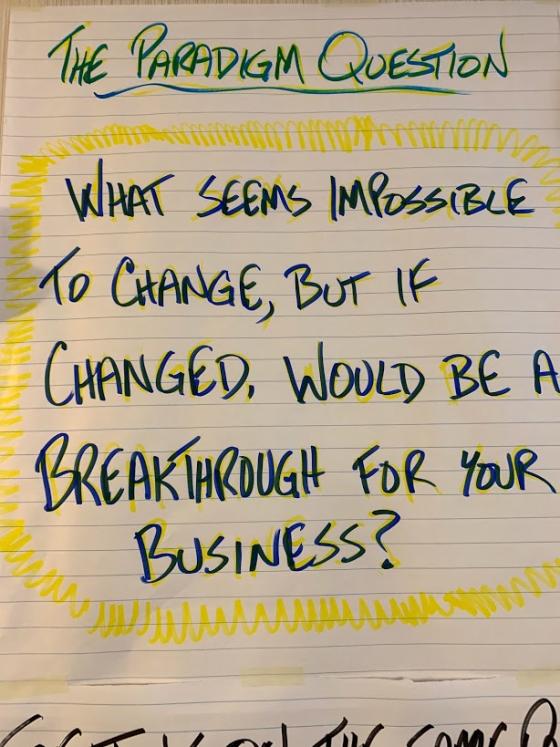 THE PARADIGM QUESTION
WHAT SEEMS IMPOSSIBLE
TO CHANGE, BUT IF
CHANGED, WOULD BE A
BREAKTHROUGH FOR YOUR
BUSINESS?
THE SAME